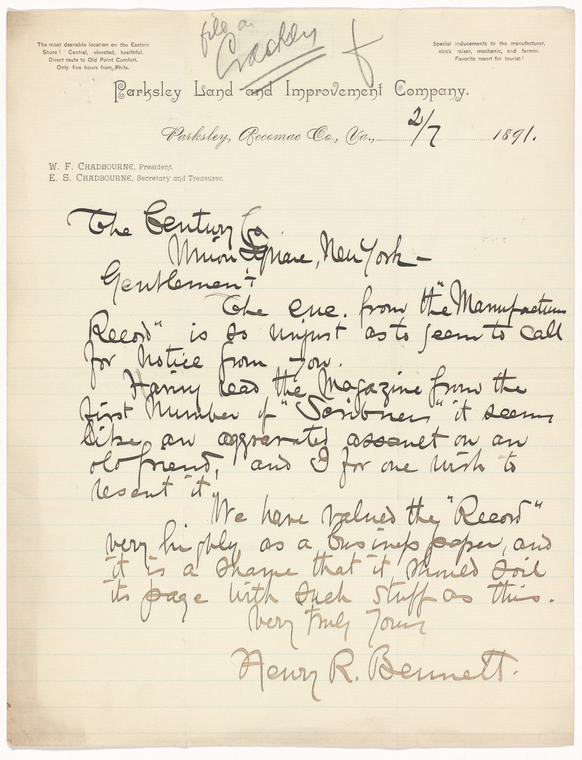 file as
Crackley
The most desirable location on the Eastern
Shore! Central, elevated, healthful.
Direct route to Old Point Comfort.
Only five hours from Phila.
Special inducements to the manufacturer,
stock raiser, mechanic, and farmer.
Favorite resort for tourist!
Parksley Land and Improvement Company.
Parksley, Accomac Co., Va., 2/7 1891.
W. F. CHADBOURNE, President.
E. S. CHADBOURNE, Secretary and Treasurer.
The Century Co
Union Square, New York -
Gentlemen:
The enc. from the "Manufacturers
Record" is so unjust as to seem to call
for notice from you.
Having read the Magazine from the
first number of "Scribner" it seems
like an aggravated assault on an
old friend, and I for one wish to
resent it.
We have valued the "Record"
very highly as a business paper, and
it is a shame that it should soil
its page with such stuff as this.
Very truly yours
Henry R. Bennett.